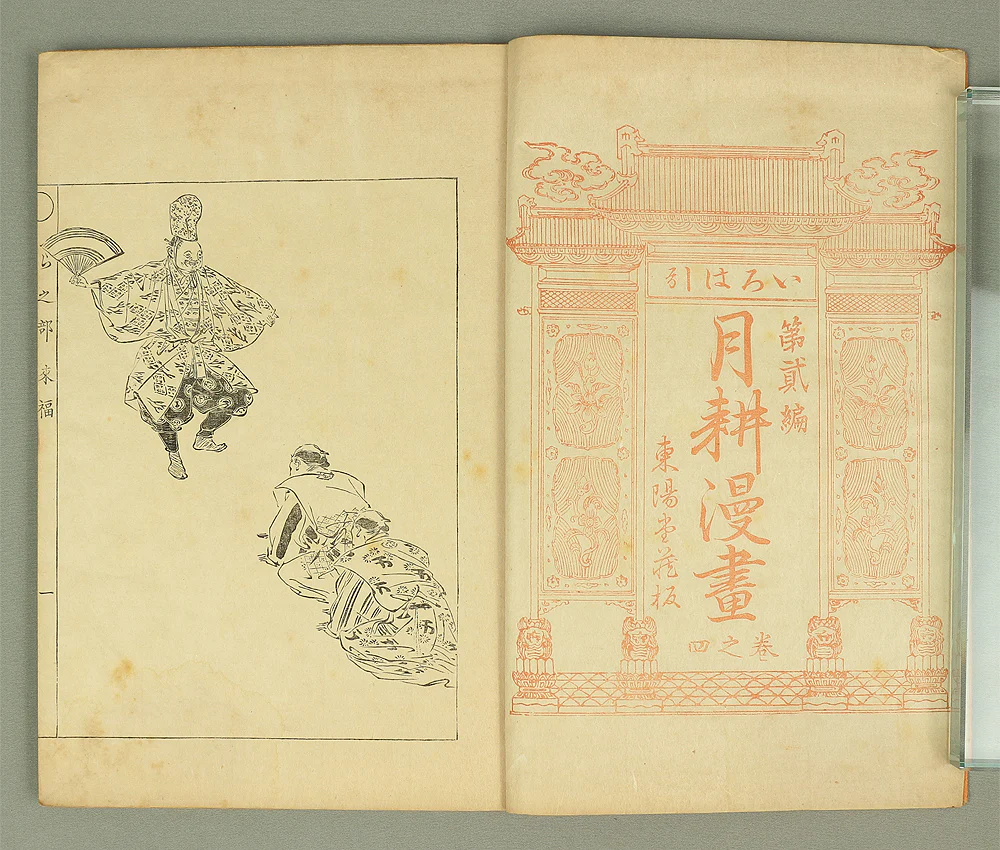 いろは引
第貳編
月耕漫畫
東陽堂藏板
卷之四
らの部 來福
一